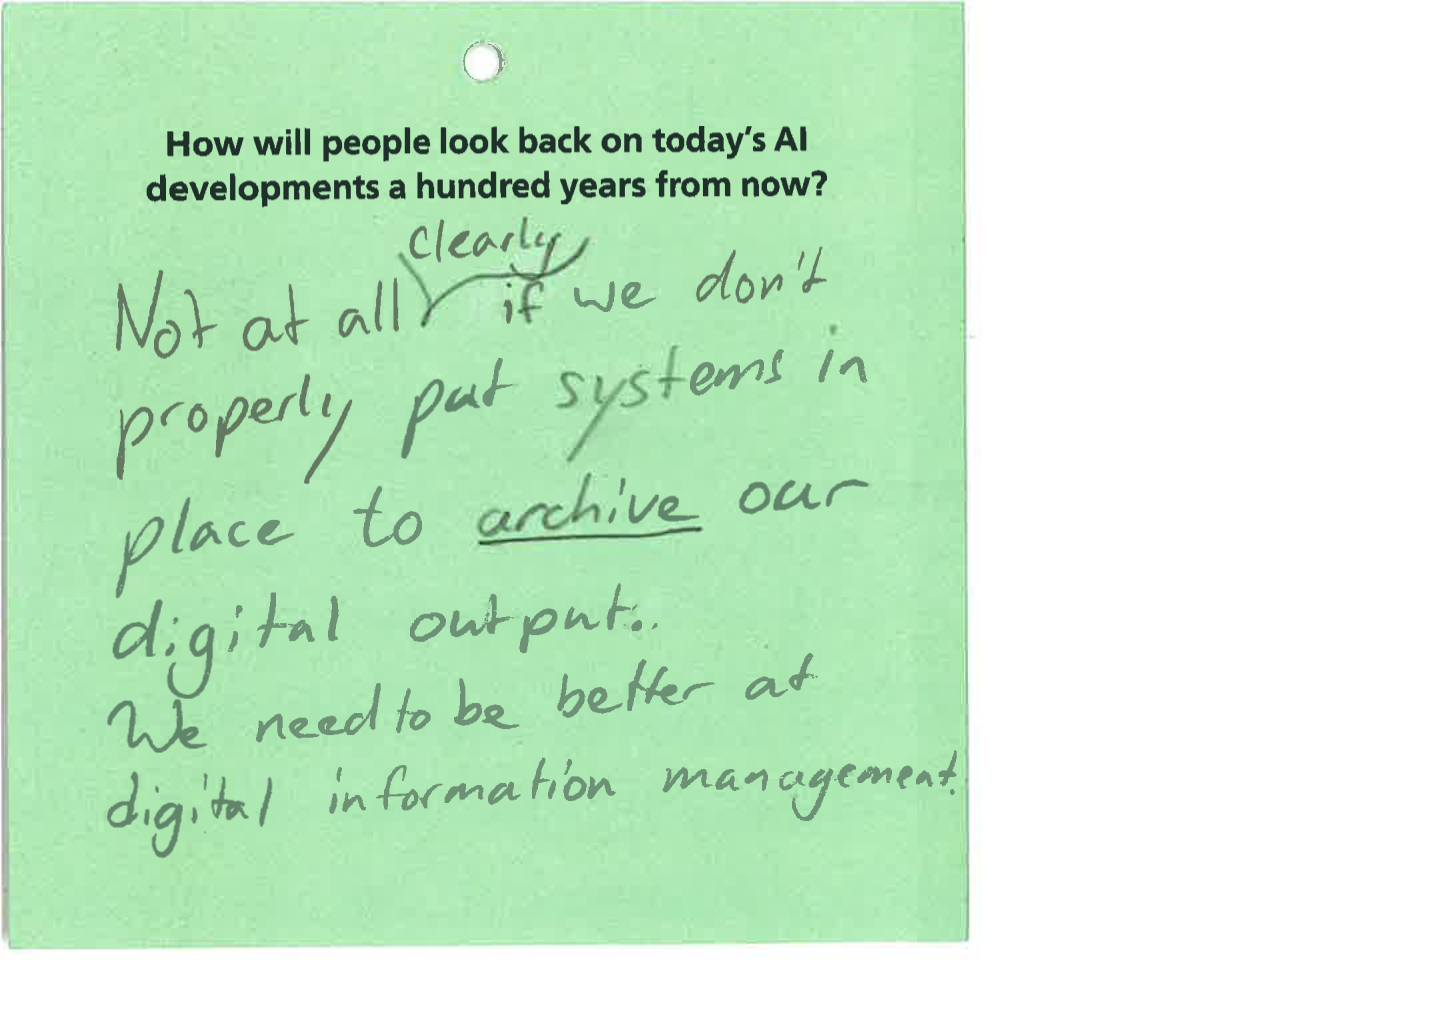 How will people look back on today's AI
developments a hundred years from now?
Not at all clearly if we don't
properly put systems in
place to archive our
digital output..
We need to be better at
digital information management.